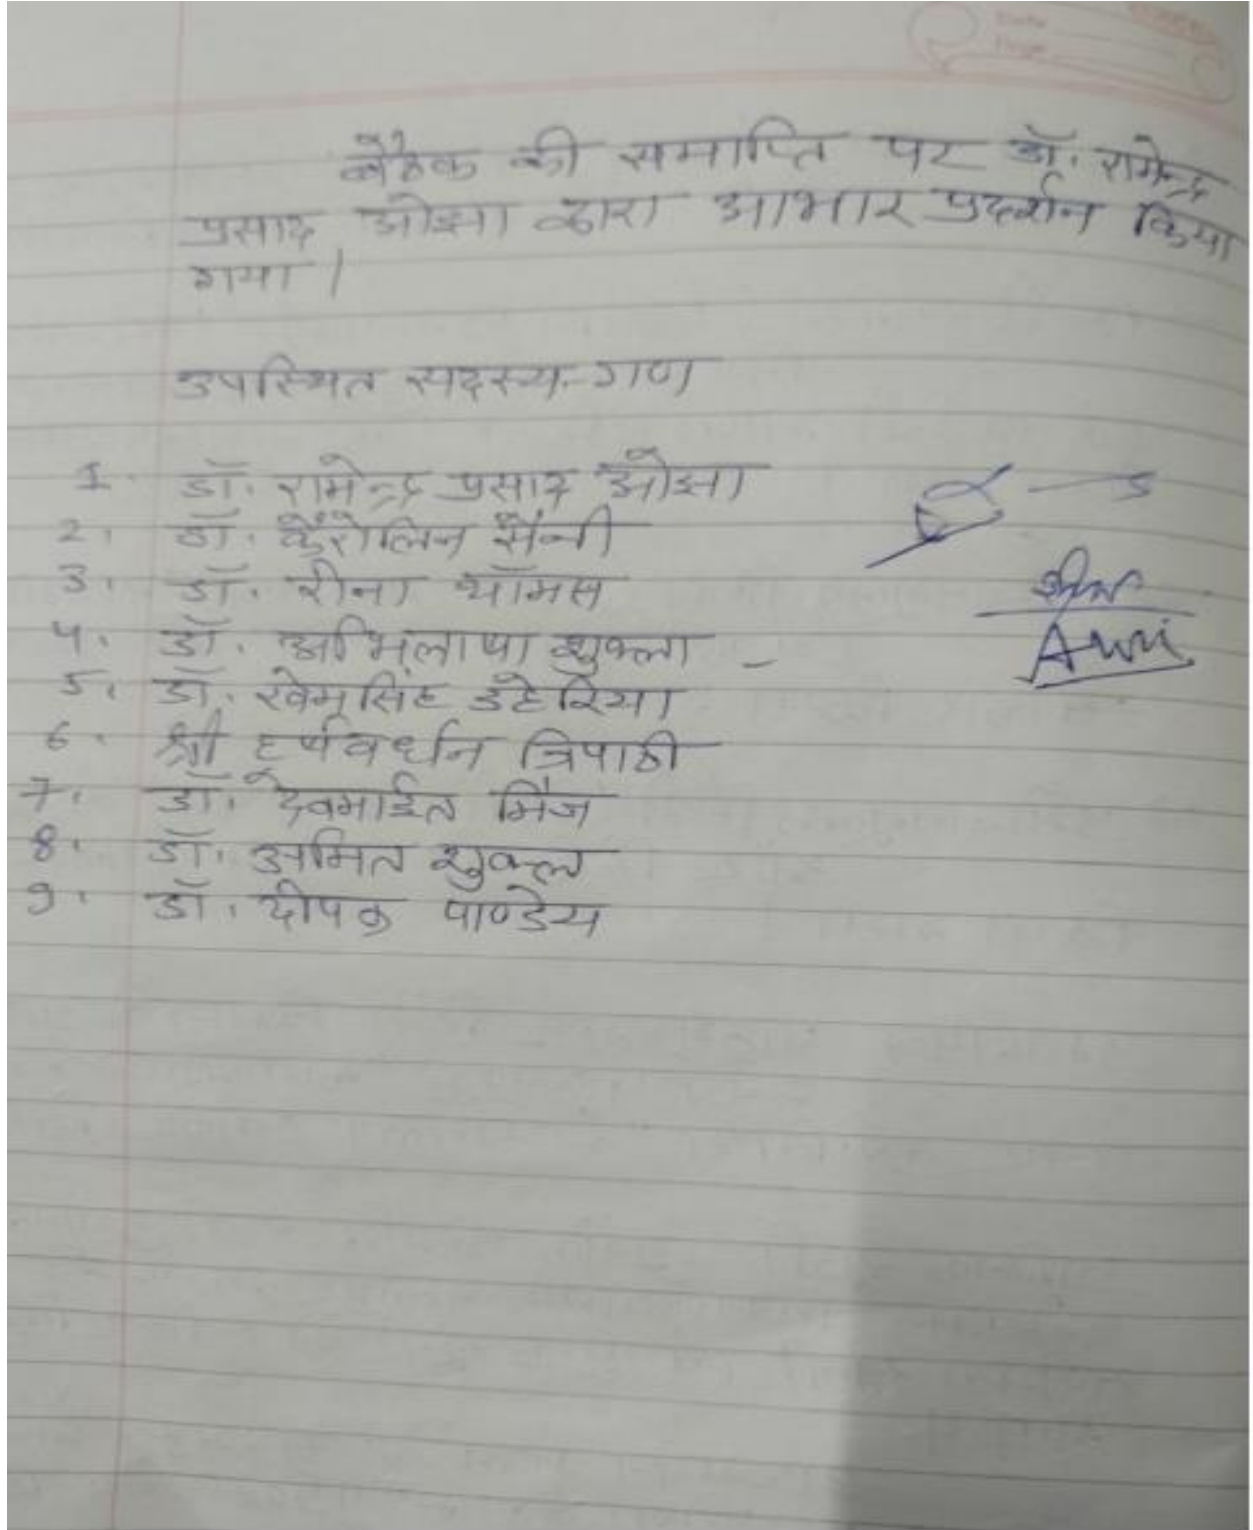 Date
Page
बैठक की समाप्ति पर डॉ. रामेन्द्र
प्रसाद ओझा द्वारा आभार प्रदर्शन किया
गया।
उपस्थित सदस्य-गण
1. डॉ. रामेन्द्र प्रसाद ओझा
2. डॉ. कैरोलिन सैनी
3. डॉ. रीना थॉमस
4. डॉ. अभिलाषा शुक्ला -
5. डॉ. खेमसिंह डहेरिया
6. श्री हर्षवर्धन त्रिपाठी
7. डॉ. देवमाईत मिंज
8. डॉ. अमित शुक्ल
9. डॉ. दीपक पाण्डेय